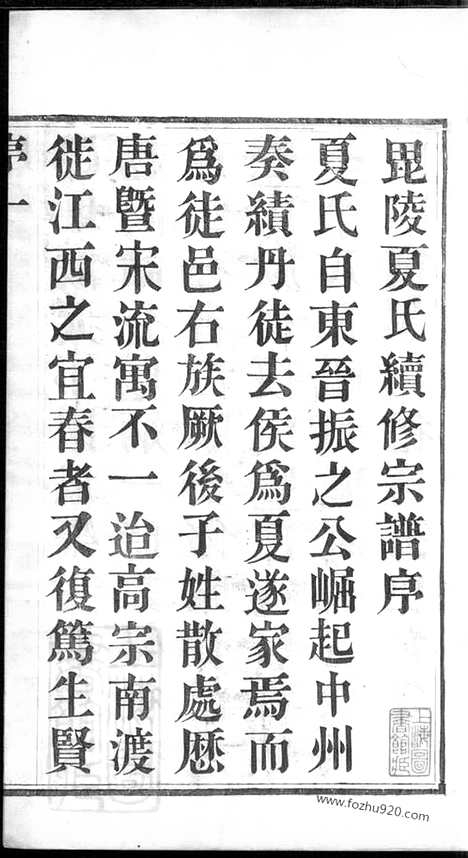 毘陵夏氏續修宗譜序
夏氏自東晉振之公崛起中州
奏績丹徒去侯爲夏遂家焉而
爲徒邑右族厥後子姓散處歷
唐暨宋流寓不一迨高宗南渡
徙江西之宜春者又復篤生賢
序一
上海圖書館藏
www.fozhu920.com